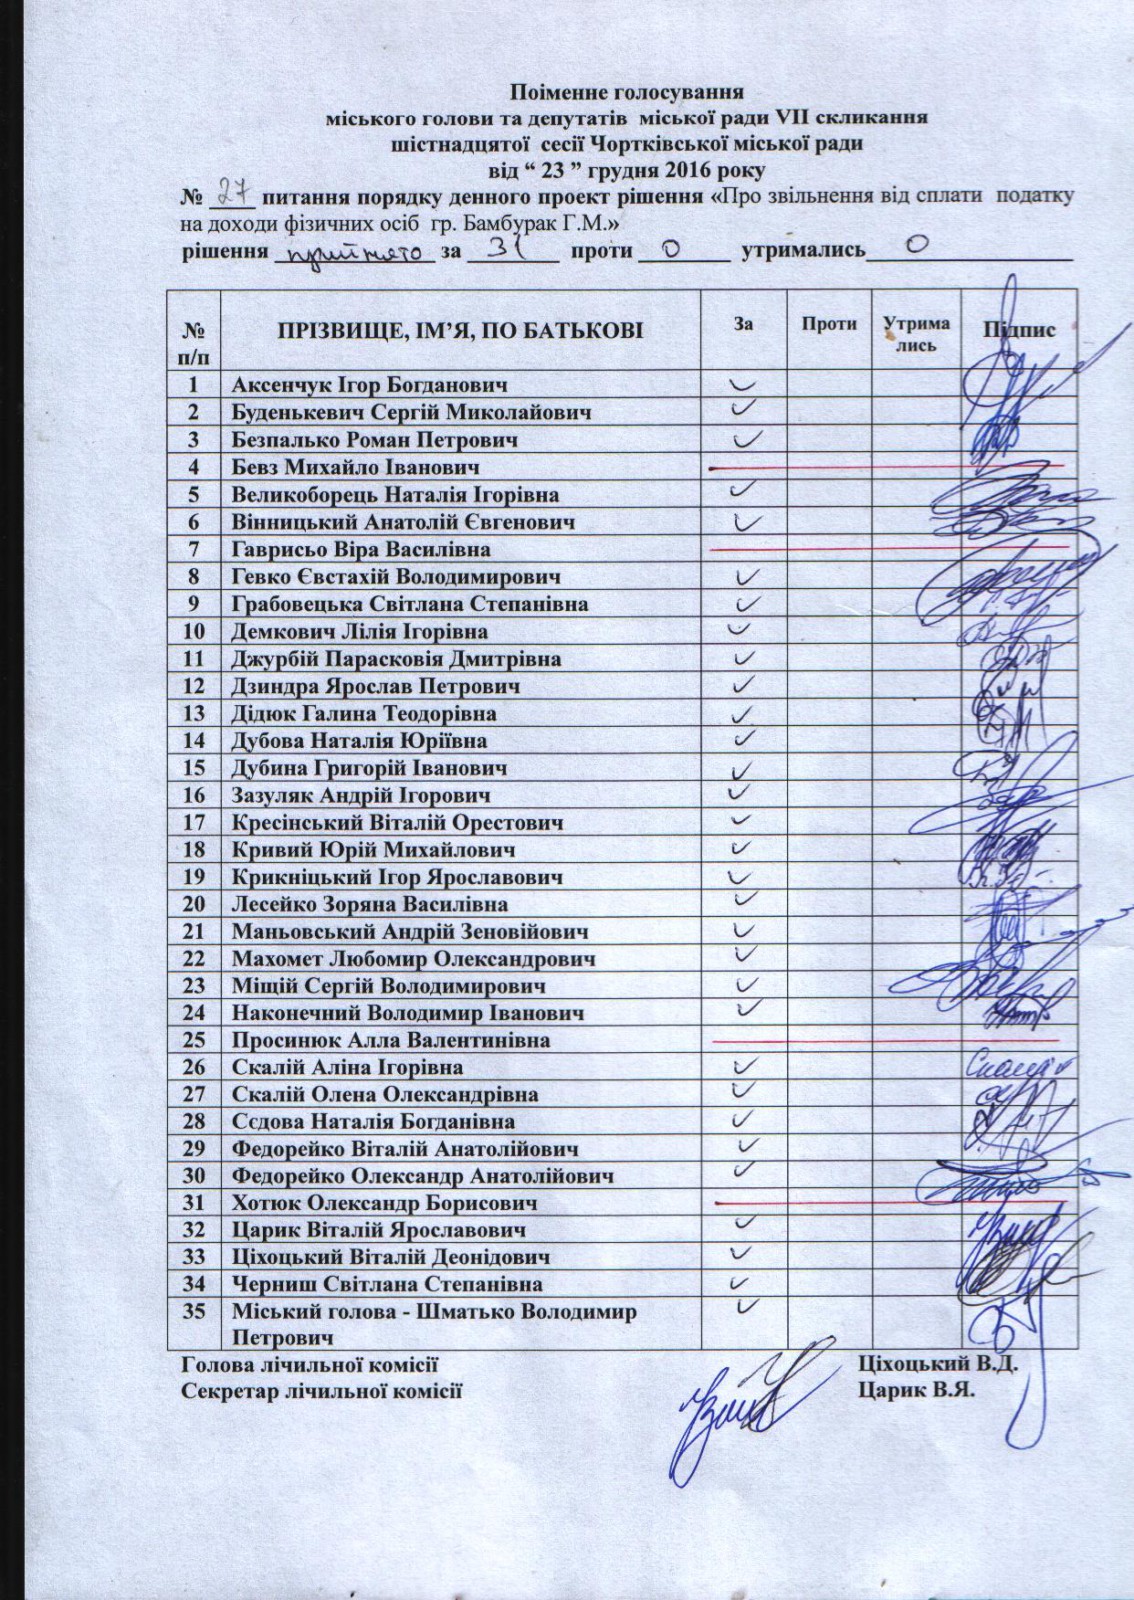 Поіменне голосування
міського голови та депутатів міської ради VII скликання
шістнадцятої сесії Чортківської міської ради
від “ 23 ” грудня 2016 року
№ 27 питання порядку денного проект рішення «Про звільнення від сплати податку
на доходи фізичних осіб гр. Бамбурак Г.М.»
рішення прийнято за 31 проти 0 утримались 0
№ п/п ПРІЗВИЩЕ, ІМ’Я, ПО БАТЬКОВІ За Проти Утрима лись Підпис
1 Аксенчук Ігор Богданович
2 Буденькевич Сергій Миколайович
3 Безпалько Роман Петрович
4 Бевз Михайло Іванович
5 Великоборець Наталія Ігорівна
6 Вінницький Анатолій Євгенович
7 Гаврисьо Віра Василівна
8 Гевко Євстахій Володимирович
9 Грабовецька Світлана Степанівна
10 Демкович Лілія Ігорівна
11 Джурбій Парасковія Дмитрівна
12 Дзиндра Ярослав Петрович
13 Дідюк Галина Теодорівна
14 Дубова Наталія Юріївна
15 Дубина Григорій Іванович
16 Зазуляк Андрій Ігорович
17 Кресінський Віталій Орестович
18 Кривий Юрій Михайлович
19 Крикніцький Ігор Ярославович
20 Лесейко Зоряна Василівна
21 Маньовський Андрій Зеновійович
22 Махомет Любомир Олександрович
23 Міщій Сергій Володимирович
24 Наконечний Володимир Іванович
25 Просинюк Алла Валентинівна
26 Скалій Аліна Ігорівна
27 Скалій Олена Олександрівна
28 Сєдова Наталія Богданівна
29 Федорейко Віталій Анатолійович
30 Федорейко Олександр Анатолійович
31 Хотюк Олександр Борисович
32 Царик Віталій Ярославович
33 Ціхоцький Віталій Деонідович
34 Черниш Світлана Степанівна
35 Міський голова - Шматько Володимир
Петрович
Голова лічильної комісії Ціхоцький В.Д.
Секретар лічильної комісії Царик В.Я.